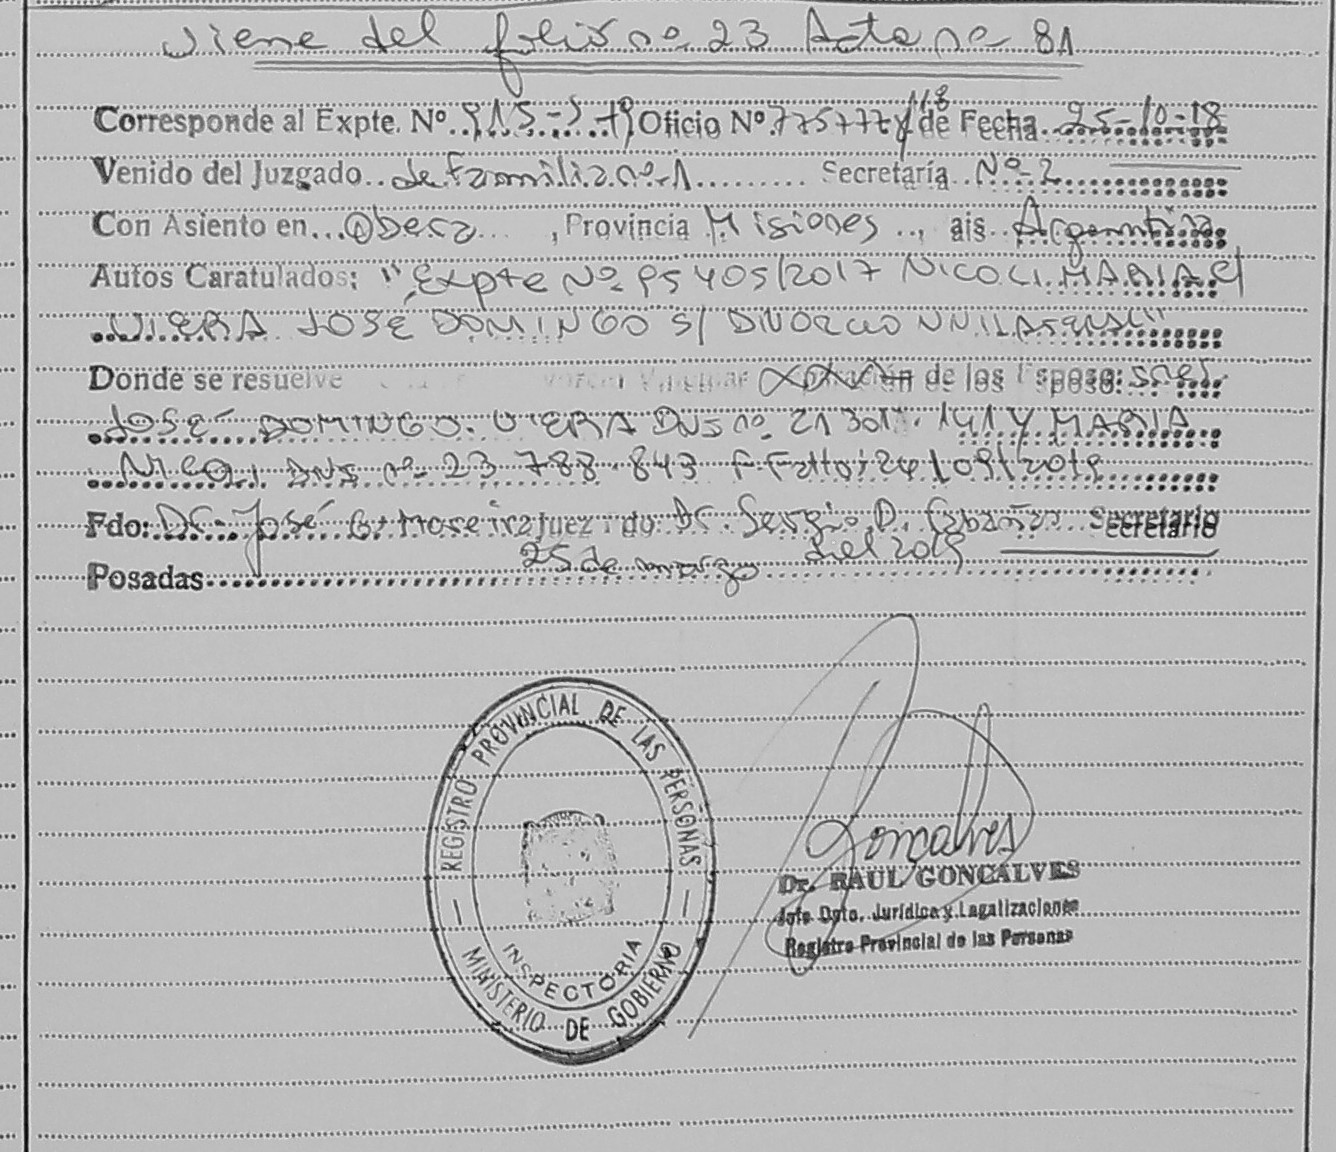 Viene del folio nº 23 Acta nº 81
Corresponde al Expte. Nº 915-S-19 Oficio Nº 775777/18 de Fecha 25-10-18
Venido del Juzgado de Familia nº 1 Secretaría Nº-2
Con Asiento en Obera, Provincia Misiones, ais Argentina
Autos Caratulados: "Expte Nº 95405/2017 NICOLI MARIA C/
VIERA JOSÉ DOMINGO S/ DIVORCIO UNILATERAL"
Donde se resuelve Vincular de los Esposo: sres.
JOSÉ DOMINGO VIERA DNI nº 21.301.141 Y MARIA
NICOLI DNI nº 23.788.843 F. Fallo: 24/09/2018
Fdo: Dr. José G. Moreira Juez Fdo: Dr. Sergio D. Cabañas Secretario
Posadas 25 de marzo del 2019
REGISTRO PROVINCIAL DE LAS PERSONAS
INSPECTORIA
MINISTERIO DE GOBIERNO
Goncalves
Dr. RAUL GONCALVES
Jefe Dpto. Jurídica y Legalizaciones
Registro Provincial de las Personas